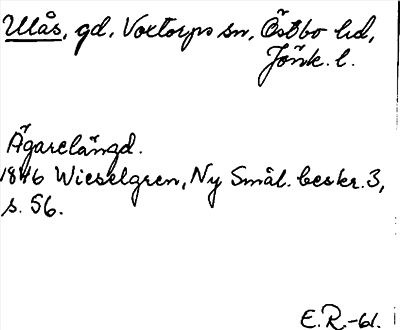 Ulås, gd, Voxtorps sn, Östbo hd,
Jönk. l.
Ägarelängd.
1846 Wieselgren, Ny Smål. beskr. 3,
s. 56.
E.R.-61.